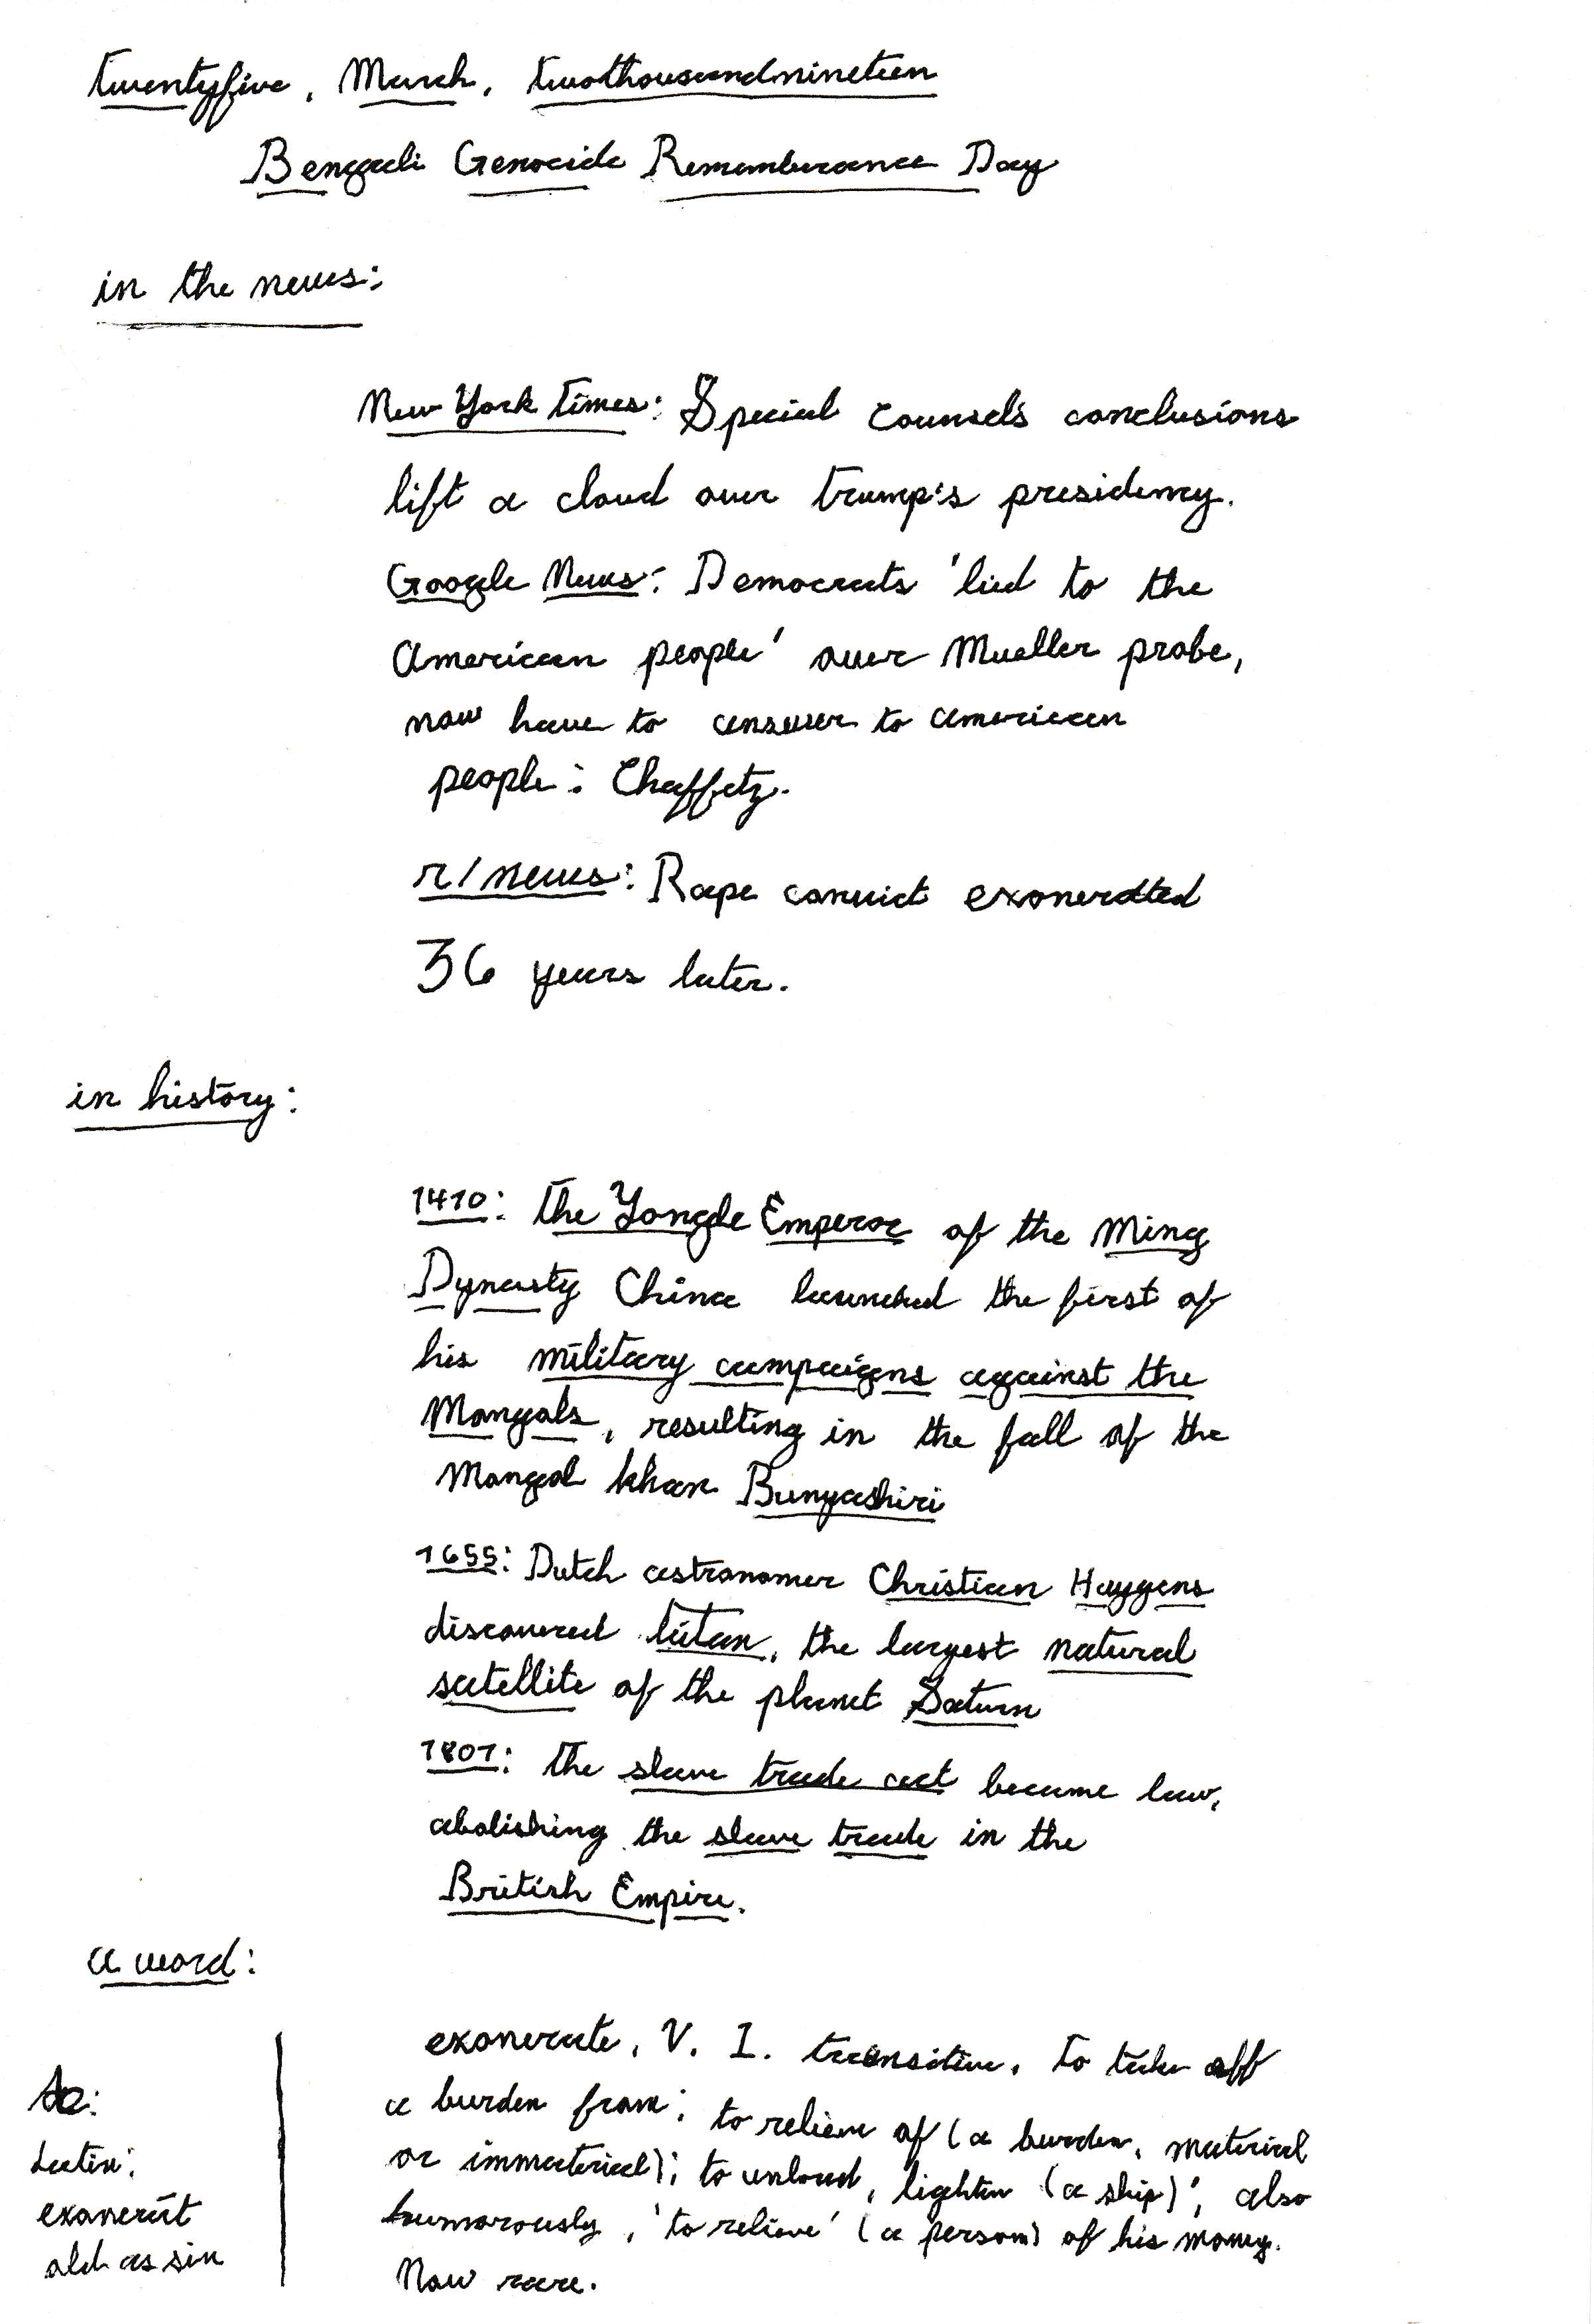 twentyfive, March, twothousandnineteen
Bengali Genocide Rememburance Day
in the news:
New York Times: Special Counsel's conclusions
lift a cloud over Trump's presidency.
Google News: Democrats 'lied to the
American people' over Mueller probe,
now have to answer to American
people: Chaffetz.
r/news: Rape convict exonerated
36 years later.
in history:
1410: the Yongle Emperor of the Ming
Dynasty China launched the first of
his military campaigns against the
Mongols, resulting in the fall of the
Mongol khan Bunyashiri
1655: Dutch astronomer Christian Huygens
discovered Titan, the largest natural
satellite of the planet Saturn
1807: the slave trade act became law,
abolishing the slave trade in the
British Empire.
a word:
exonerate, V. I. transitive. To take off
a burden from; to relieve of (a burden, material
or immaterial); to unload, lighten (a ship); also
humorously, 'to relieve' (a person) of his money.
Now rare.
Latin:
exonerāt
old as sin